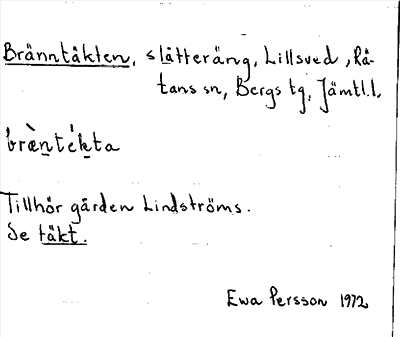 Bränntäkten, slåtteräng, Lillsved, Rä-
tans sn, Bergs tg, Jämtl.l.
brænte̍kta
Tillhör gården Lindströms.
Se täkt.
Ewa Persson 1972